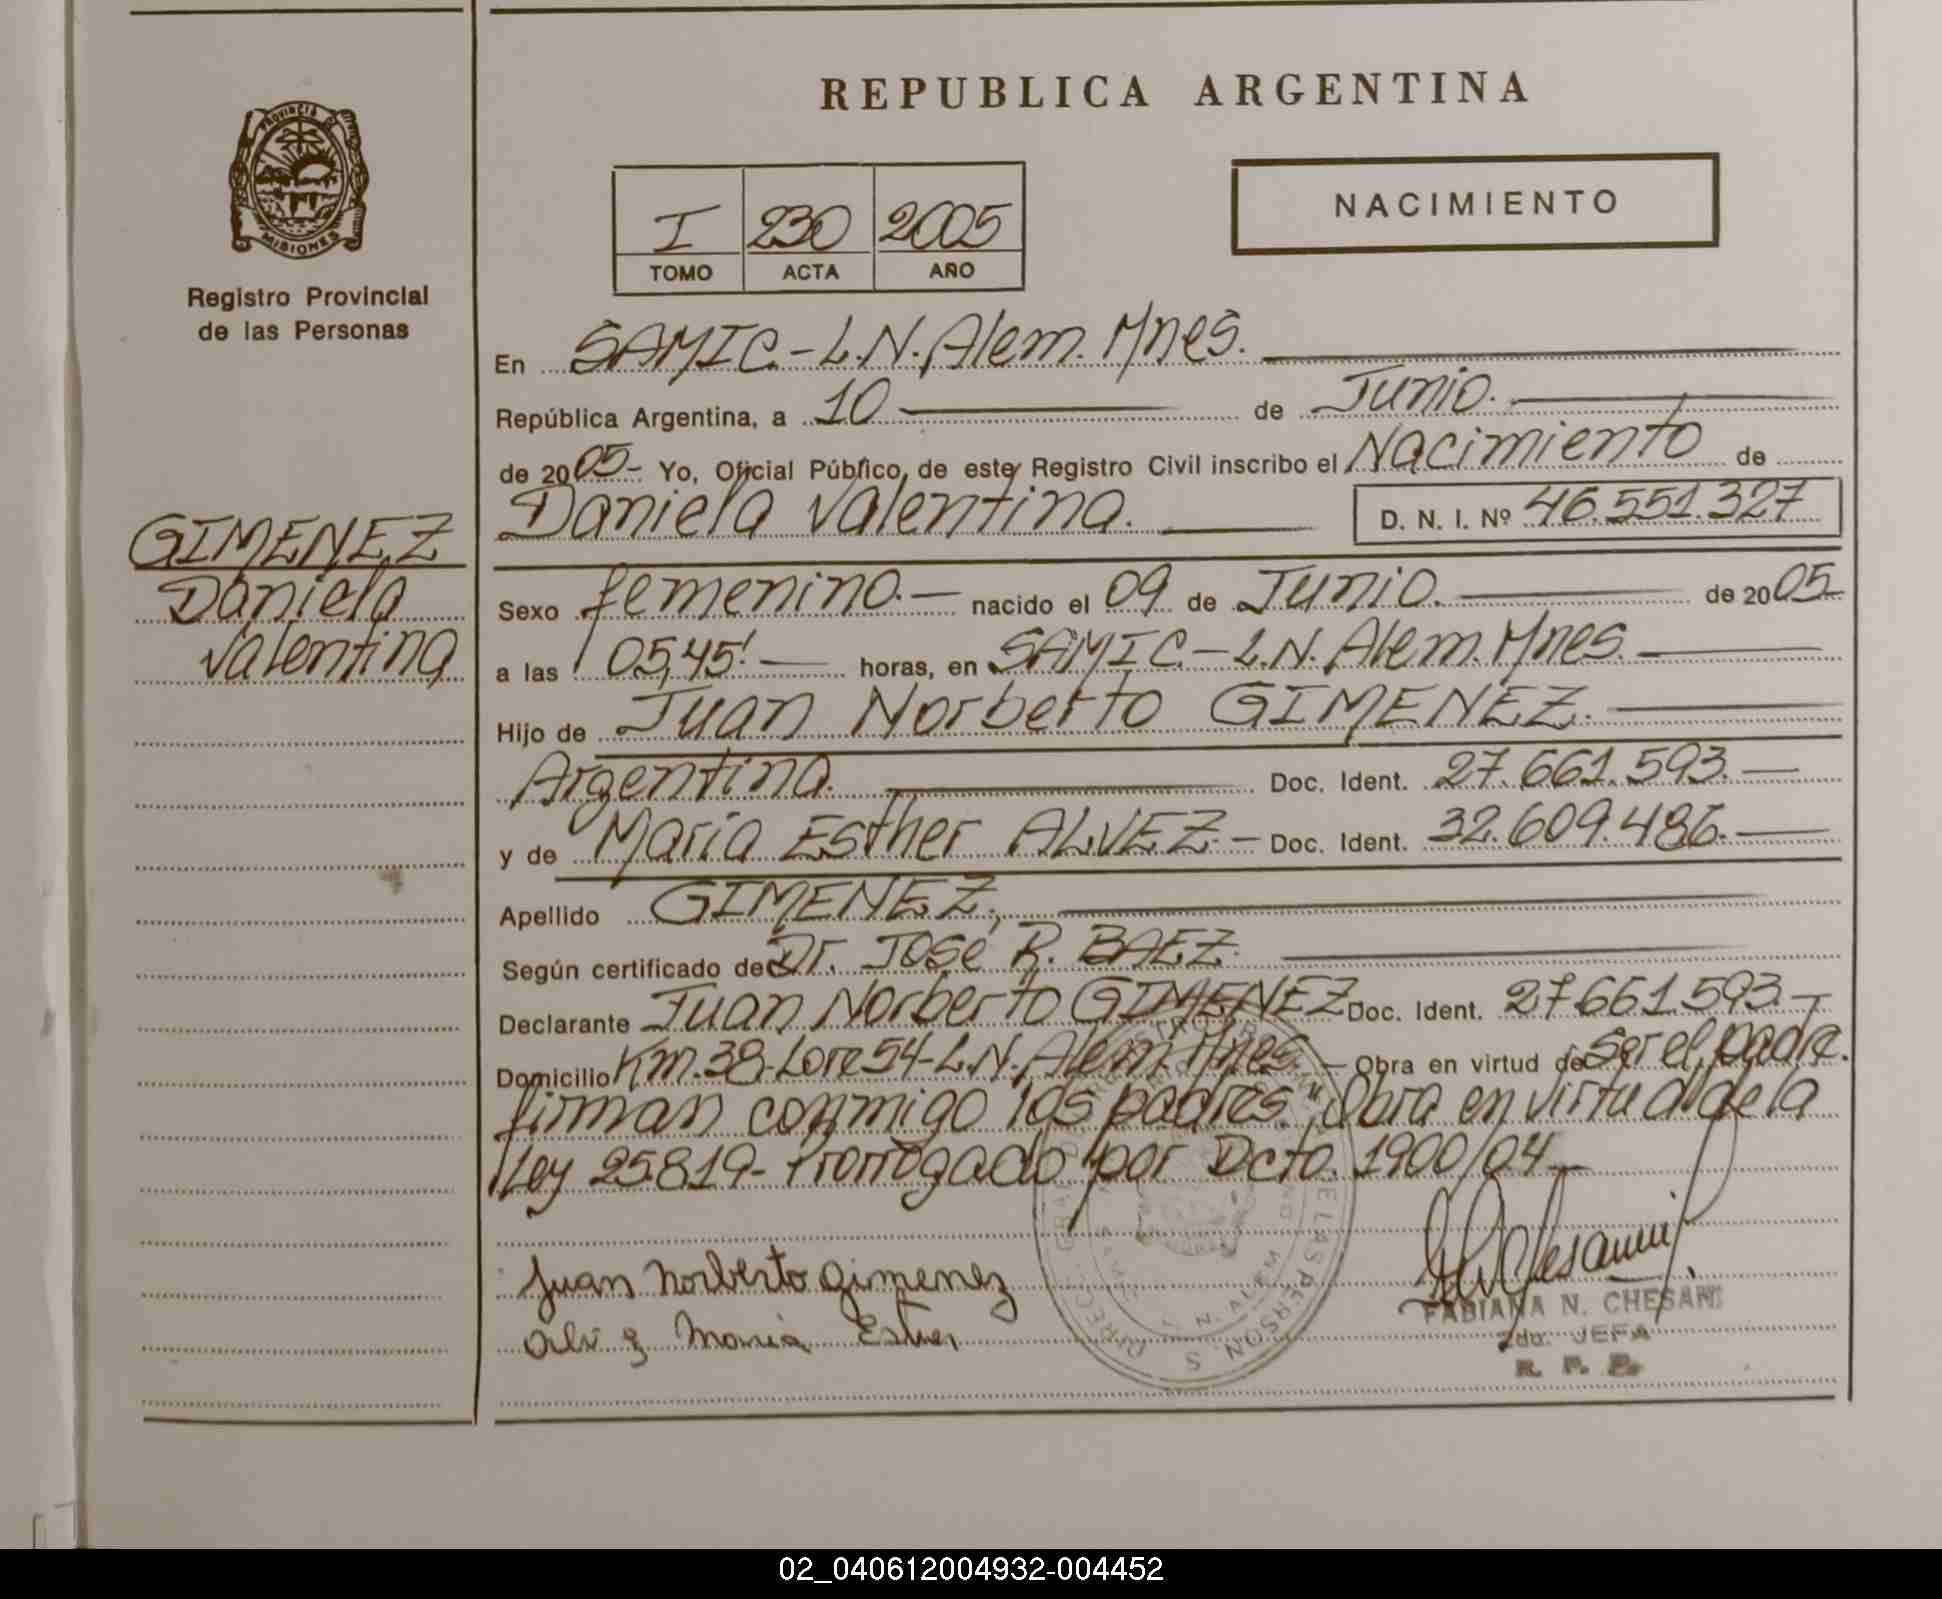 REPUBLICA ARGENTINA
PROVINCIA DE
MISIONES
Registro Provincial
de las Personas
NACIMIENTO
I 230 2005
TOMO ACTA AÑO
En SAMIC.-L.N.Alem. Mnes.
República Argentina, a 10 de Junio.
de 2005- Yo, Oficial Público, de este Registro Civil inscribo el Nacimiento de
Daniela Valentina. D. N. I. Nº 46.551.327
GIMENEZ
Daniela
Valentina
Sexo femenino.- nacido el 09 de Junio. de 2005
a las 05,45'. horas, en SAMIC.-L.N.Alem.Mnes.
Hijo de Juan Norberto GIMENEZ.
Argentina. Doc. Ident. 27.661.593.-
y de María Esther ALVEZ.- Doc. Ident. 32.609.486.-
Apellido GIMENEZ.
Según certificado de Dr. José R. BAEZ.
Declarante Juan Norberto GIMENEZ Doc. Ident. 27.661.593.-
Domicilio Km.38-Lote 54-L.N.Alem.Mnes.- Obra en virtud de Ser el padre.
firman conmigo los padres." Obra en virtud de la
Ley 25.819- Prorrogado por Dcto. 1900/04-
Juan Norberto Gimenez
Alvez María Esther
FABIANA N. CHESANI
2do. JEFA
R. P. P.
02_040612004932-004452